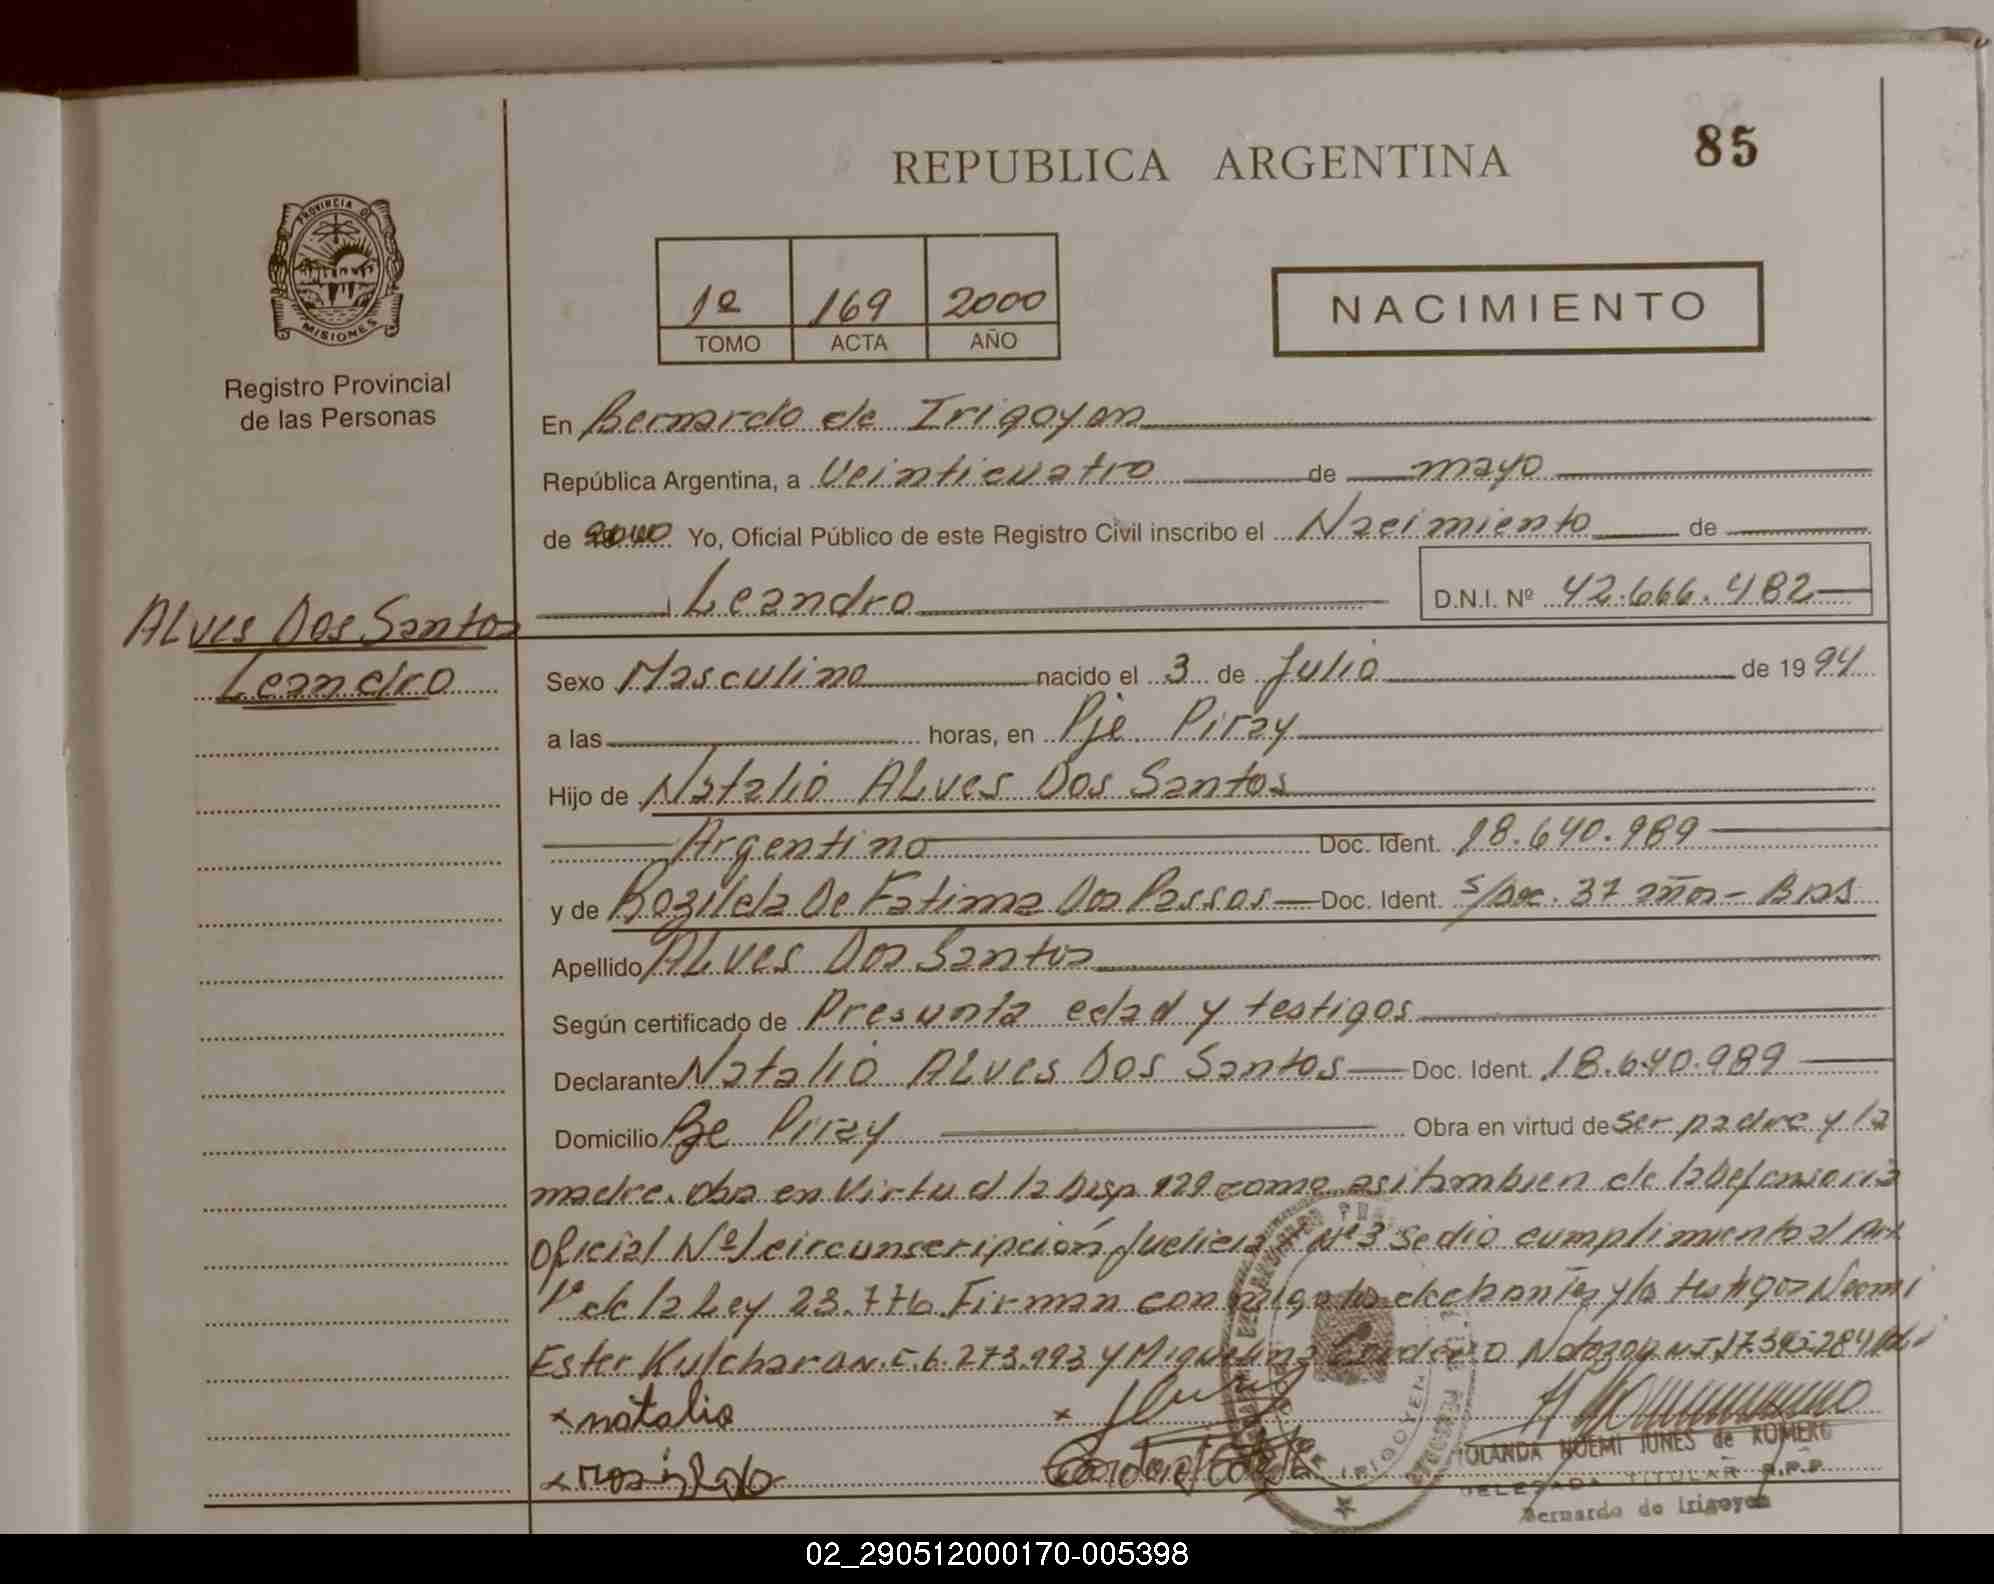 85
REPUBLICA ARGENTINA
PROVINCIA DE
MISIONES
Registro Provincial
de las Personas
1º 169 2000
TOMO ACTA AÑO
NACIMIENTO
En Bernardo de Irigoyen
República Argentina, a Veinticuatro de mayo
de 2000 Yo, Oficial Público de este Registro Civil inscribo el Nacimiento de
Leandro D.N.I. Nº 42.666.482
ALves Dos Santos
Leandro
Sexo Masculino nacido el 3 de Julio de 1994
a las horas, en Pje. Piray
Hijo de Natalio ALves Dos Santos
Argentino Doc. Ident. 18.640.989
y de Rozilda De Fatima Dos Passos Doc. Ident. s/Doc. 37 años - Bras
Apellido ALves Dos Santos
Según certificado de Presunta edad y testigos
Declarante Natalio ALves Dos Santos Doc. Ident. 18.640.989
Domicilio Pje Piray Obra en virtud de ser padre y la
madre. en Virtud la Disp 129 como asi tambien de la Defensoria
Oficial Nº1 circunscripción Judicial Nº3 se dio cumplimiento al Art
1º de la Ley 23.776 Firman con los y los testigos Noemi
Ester 6.273.993 y
x natalio x
x rosilda
YOLANDA NOEMI IUNES de ROMERO
DELEGADA TITULAR R.P.P.
Bernardo de Irigoyen
02_290512000170-005398